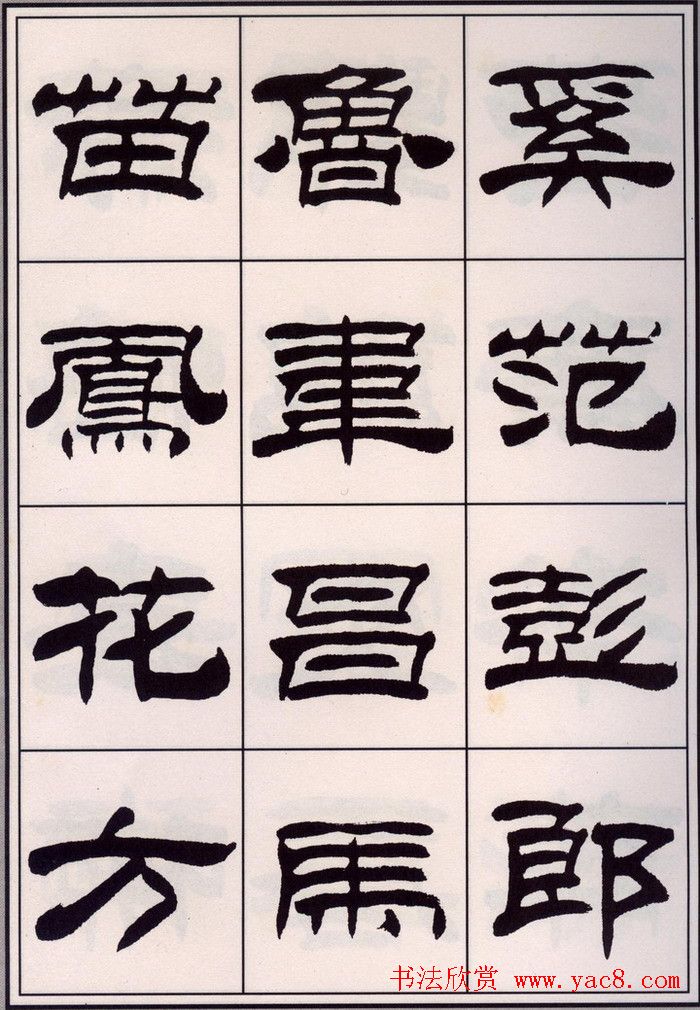 奚范彭郎
魯韋昌馬
苗鳳花方
书法欣赏 www.yac8.com